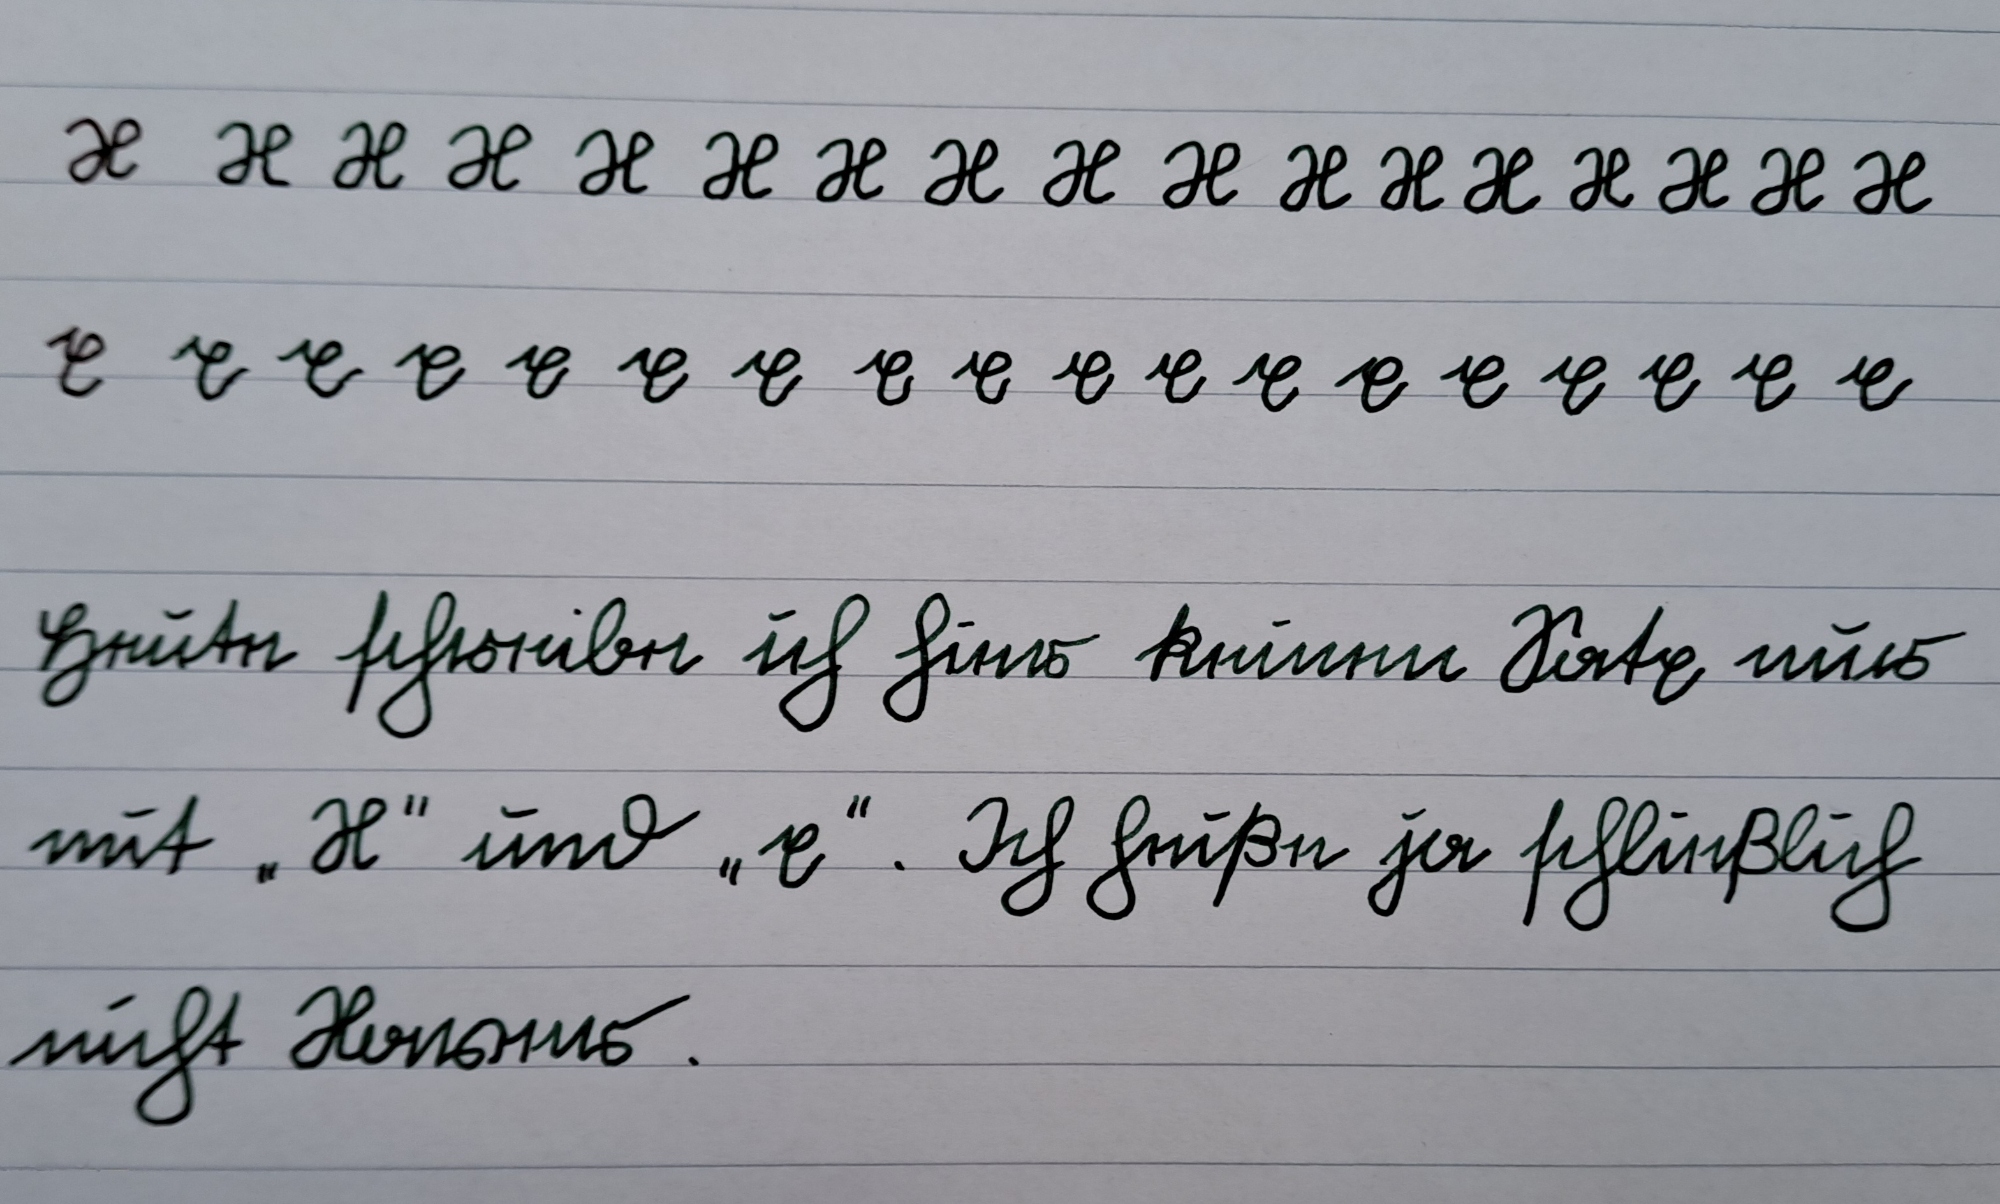 X X X X X X X X X X X X X X X X X
x x x x x x x x x x x x x x x x x x
Heute schreibe ich hier keinen Satz nur
mit „X“ und „x“. Ich heiße ja schließlich
nicht Xaver.